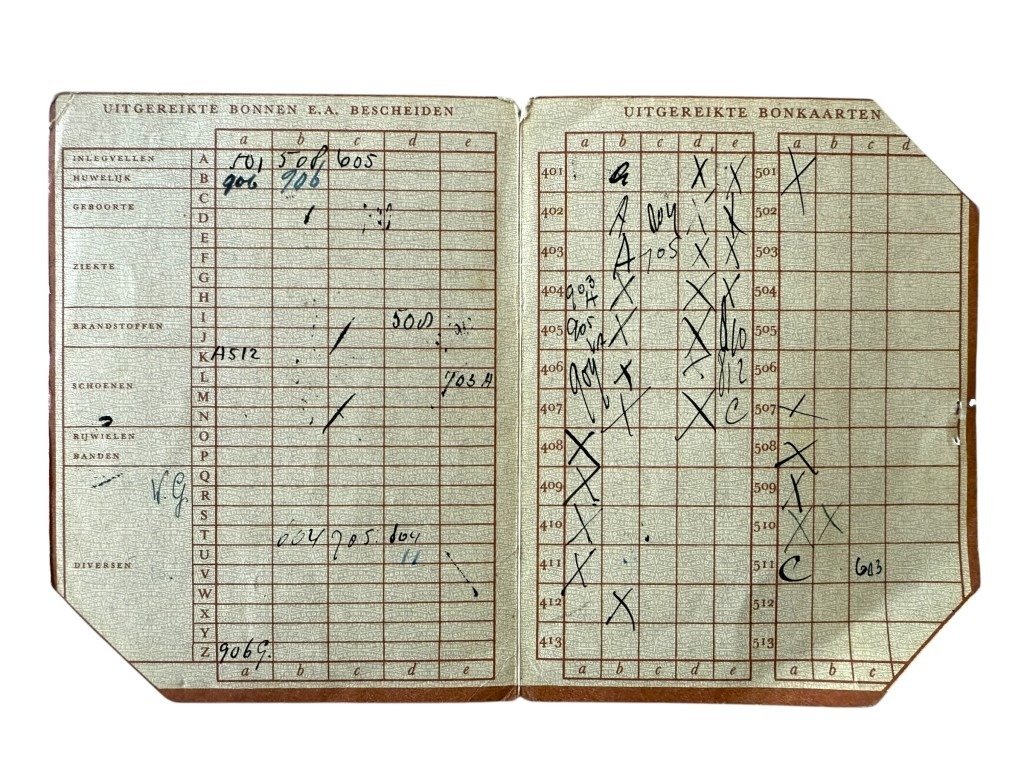 UITGEREIKTE BONNEN E.A. BESCHEIDEN
a b c d e
INLEGVELLEN A 501 508 605
HUWELIJK B 906 906
GEBOORTE C
D
E
ZIEKTE F
G
H
I
BRANDSTOFFEN J 508
K A512
SCHOENEN L 703 A
M
N
RIJWIELEN O
BANDEN P
Q
V.G. R
S
T 604 705 604
U 11
DIVERSEN V
W
X
Y
Z 906 G.
a b c d e
UITGEREIKTE BONKAARTEN
a b c d e a b c d
401 a X X 501 X
402 A 604 X 502
403 A 705 X X 503
404 903 A X X X 504
405 905 X X 505
406 904 X 506
407 X X C 507 X
408 X 508 X
409 X 509 X
410 X 510 X X
411 X 511 C 603
412 X 512
413 513
a b c d e a b c